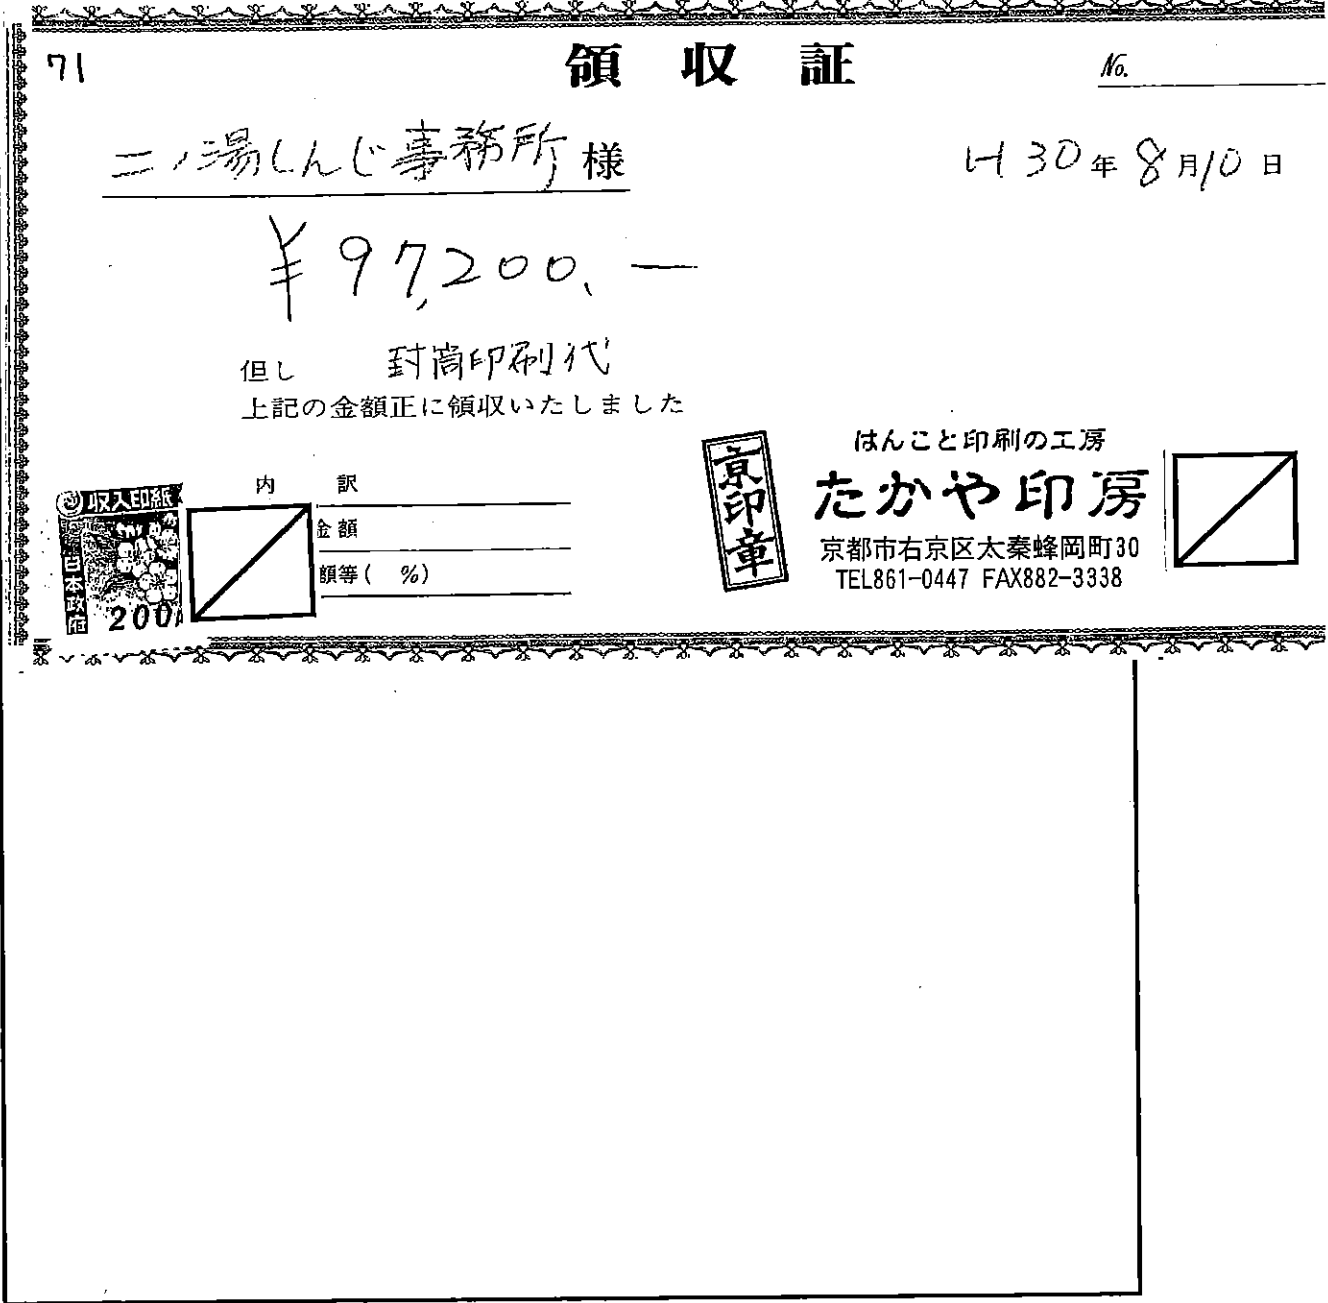 71
領収証
No.
二ノ湯しんじ事務所様
H30年8月10日
¥97,200.―
但し 封筒印刷代
上記の金額正に領収いたしました
内訳
金額
額等( %)
収入印紙
日本政府
200
京印章
はんこと印刷の工房
たかや印房
京都市右京区太秦蜂岡町30
TEL861-0447 FAX882-3338